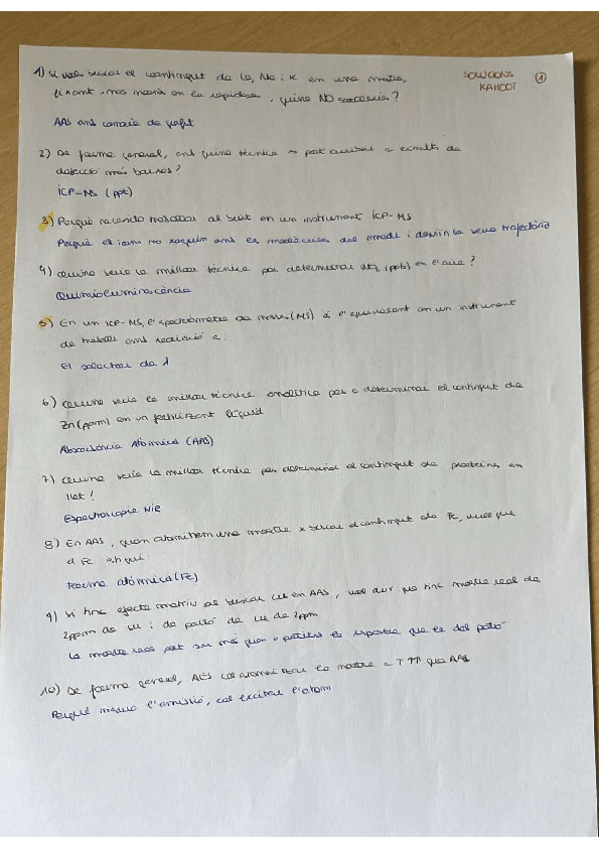 SOLUCIONS KAHOOT 1
1) Si vols buscar el contingut de Ca, Na i K en una mostra,
fixant-nos només en la rapidesa, quina NO usaries?
AAS amb cambra de grafit
2) De forma general, amb quina tècnica es pot arribar a límits de
detecció més baixos?
ICP-MS (ppt)
3) Perquè necessito treballar al buit en un instrument ICP-MS
Perquè el ions no xoquin amb les molècules del medi i desviin la seva trajectòria
4) Quina seria la millor tècnica per determinar (ppb) en l'aire?
Quimioluminescència
5) En un ICP-MS, l'espectròmetre de masses (MS) és l'equivalent en un instrument
de treball amb radiació a:
El selector de λ
6) Quina seria la millor tècnica analítica per a determinar el contingut de
Zn (ppm) en un fertilitzant líquid
Absorbància Atòmica (AAS)
7) Quina seria la millor tècnica per determinar el contingut de proteïnes en
llet?
Espectroscopia NIR
8) En AAS, quan atomitzem una mostra x buscar el contingut de Fe,
el Fe
Forma atòmica (Fe)
9) Si tinc efecte matriu al buscar Cu en AAS, vol dir que tinc mostra real de
2ppm de Cu i de patró de Cu de 2ppm
La mostra real pot ser més gran o petita la resposta que la del patró
10) De forma general, AES cal atomitzar la mostra a T ↑↑ que AAS
Perquè mesuro l'emissió, cal excitar l'àtom